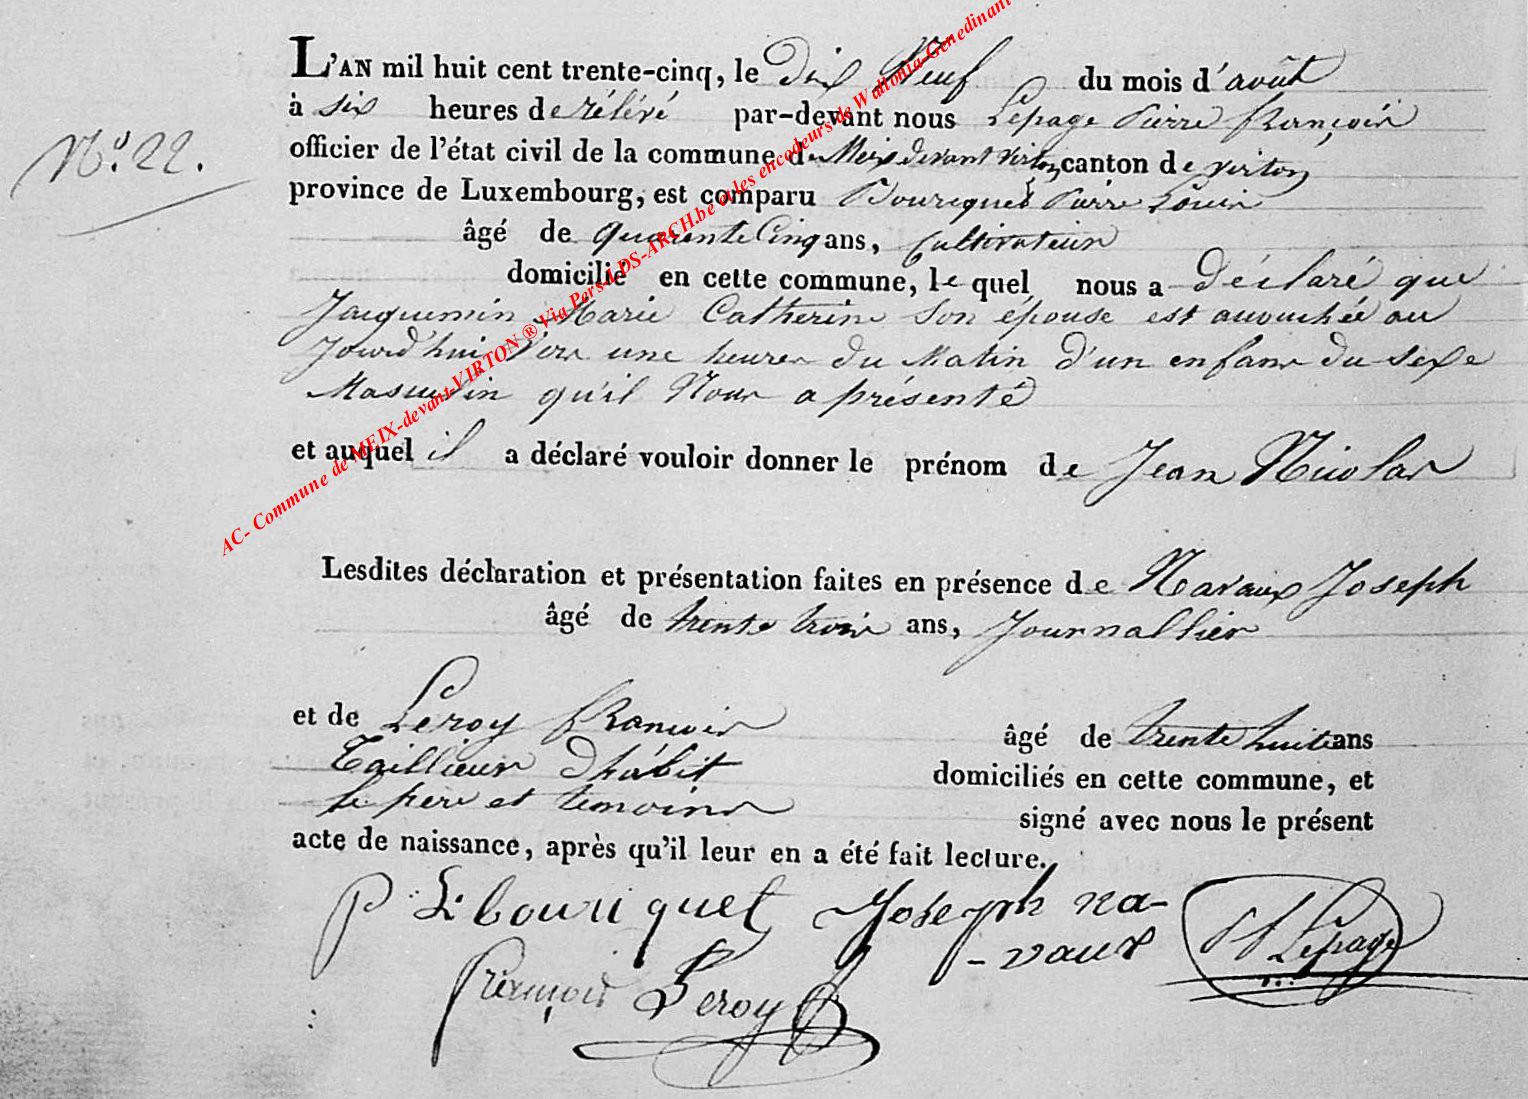 L'AN mil huit cent trente-cinq, le dix Neuf du mois d'août
à six heures de rélévé par-devant nous Lepage Pierre François
N.º 22.
officier de l'état civil de la commune de Meix devant virton canton de virton
province de Luxembourg, est comparu Bouriquet Pierre Louis
âgé de quarente Cinq ans, Cultivateur
domicilié en cette commune, le quel nous a déclaré que
Jacquemin Marie Catherine son épouse est accouchée au
Jourd'hui vers une heure du Matin d'un enfant du sexe
Masculin qu'il Nous a présenté
et auquel il a déclaré vouloir donner le prénom de Jean Nicolas
Lesdites déclaration et présentation faites en présence de Navaux Joseph
âgé de trente trois ans, Journallier
et de Leroy François âgé de trente huit ans
Taillieur d'habit domiciliés en cette commune, et
le père et temoins signé avec nous le présent
acte de naissance, après qu'il leur en a été fait lecture.
P L bouriquet Joseph na-
-vaux Lepage
François Leroy
AC- Commune de MEIX-devant-VIRTON ® Via Pers-LDS-ARCH.be et les encodeurs de Wallonia-Genedinant